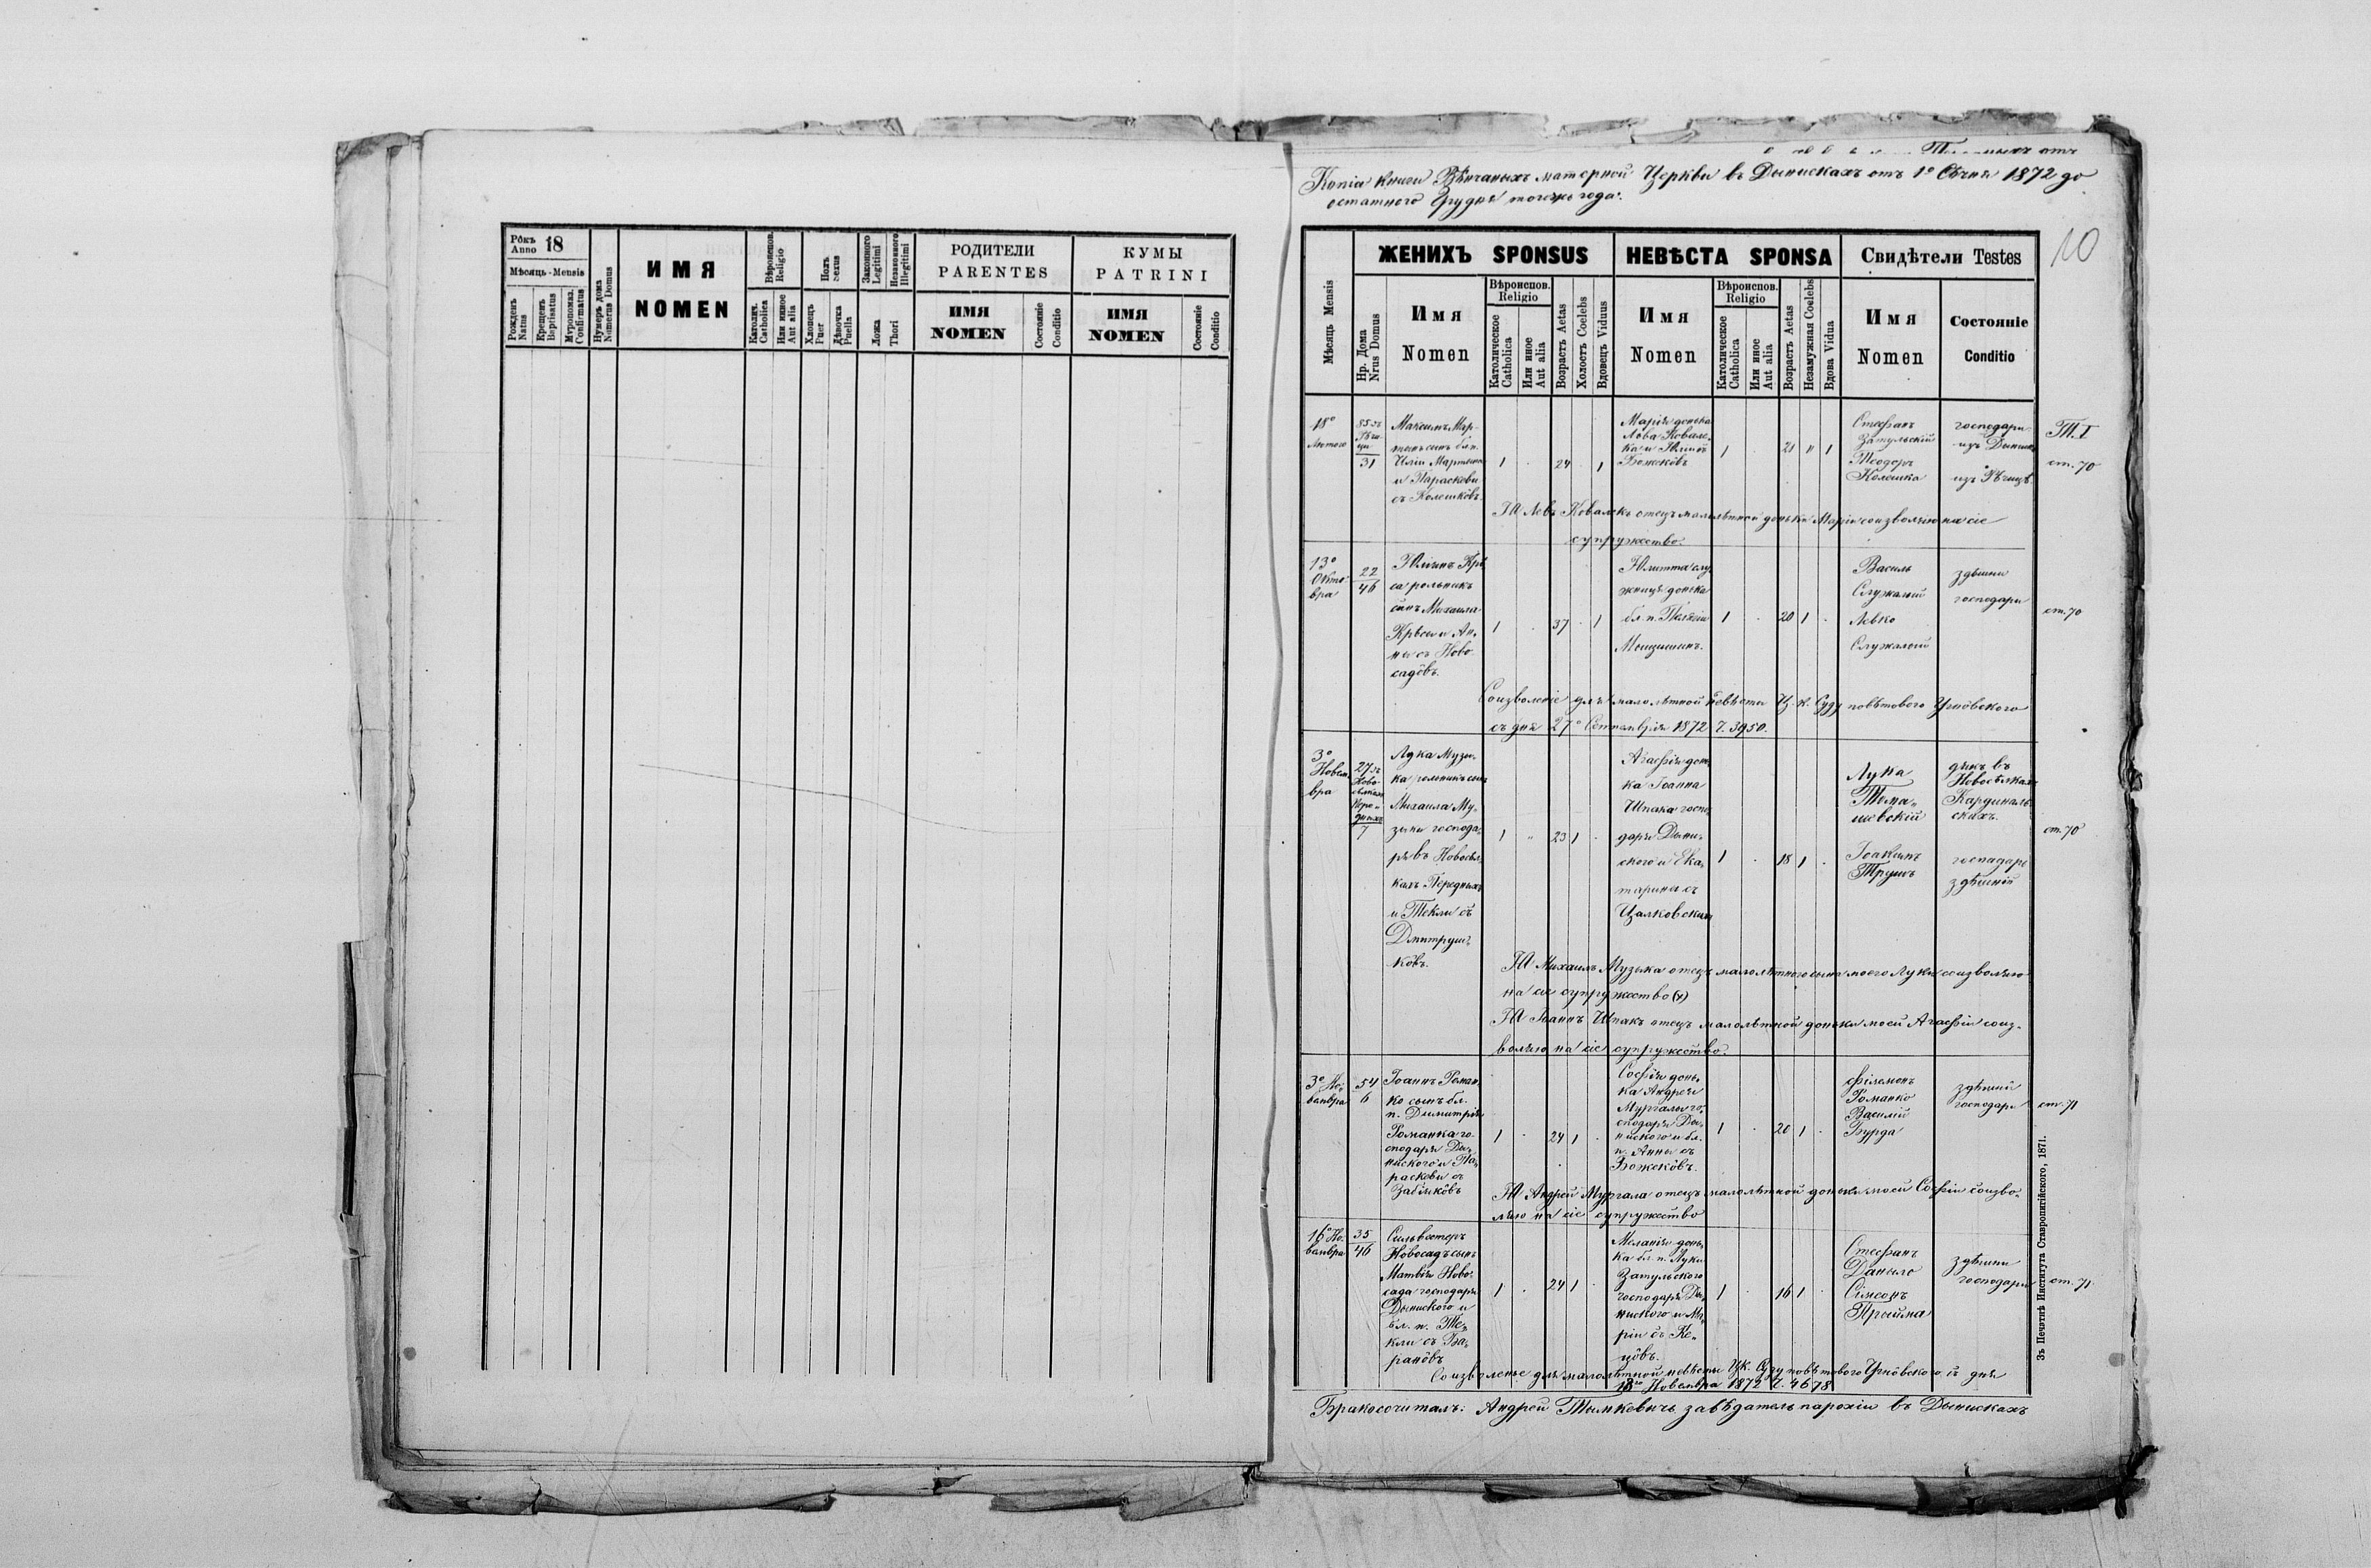 Рôкъ 18
Anno
Мѣсяць - Mensis
Рожденъ
Natus
Крещенъ
Baptisatus
Мѵропомаз.
Confirmatus
Нумеръ дома
Numerus Domus
ИМЯ
NOMEN
Вѣроиспов.
Religio
Католич.
Catholica
Или инное
Aut alia
Полъ
Sexus
Хлопець
Puer
Дѣвочка
Puella
Законного
Legitimi
Незаконного
Illegitimi
Ложа
Thori
РОДИТЕЛИ
PARENTES
ИМЯ
NOMEN
Состояніе
Conditio
КУМЫ
PATRINI
ИМЯ
NOMEN
Состояніе
Conditio
Копіа книги Вѣнчаныхъ матерной Церкви въ Дынискахъ отъ 1º Сѣчня 1872 до
остатного Грудня тогожь года.
10
Мѣсяць Mensis
Нр. Дома
Nrus Domus
ЖЕНИХЪ SPONSUS
Имя
Nomen
Вѣроиспов.
Religio
Католическое
Catholica
Или иное
Aut alia
Возрастъ Aetas
Холостъ Coelebs
Вдовець Viduus
НЕВѢСТА SPONSA
Имя
Nomen
Вѣроиспов.
Religio
Католическое
Catholica
Или иное
Aut alia
Возрастъ Aetas
Незамужная Coelebs
Вдова Vidua
Свидѣтели Testes
Имя
Nomen
Состояніе
Conditio
18º
Лютого
31
Максимъ Мар-
тынъ сынъ бл. п.
Иліи Мартына
и Параскеви
съ Колешкôвъ.
1 24 1
Марія донька
Лева Ковале-
ка и Юліи съ
Божекôвъ
1 21 " 1
Стефанъ
Затульскій
Теодоръ
Колешка
господари
изъ Дыниск
изъ Рѣчицъ.
Т. I
ст. 70
Я Левъ Ковалекъ отецъ малолѣтной доньки Маріи соизволяю на сіе
супружество.
13º
Окто-
вра
22
46
са рольникъ
сынъ Михаила
ны съ Ново-
садôвъ.
1 37 1
Юлитта слу-
жниця донька
бл. п.
1 20 1
Василь
Служалый
Левко
Служалый
здѣшни
господари
ст. 70
Соизволеніе для малолѣтной невѣсты Ц. К. Суду повѣтового Угнôвского
съ дня 27º Септемврія 1872 Ч. 3950.
3º
Новем-
вра
27 въ
Ново-
сѣлкахъ
Пере-
дныхъ
7
Лука Музы-
ка рольникъ сынъ
Михаила Му-
зыки господа-
ря въ Новосѣл-
кахъ Передныхъ
и Текли съ
Дмитруш-
кôвъ.
1 " 23 1
Агафія донь-
ка Іоанна
Шпака госпо-
даря Дыни-
ского и Ека-
тарины съ
Цалковскихъ
1 18 1
Лука
Тома-
шевскій
Іоакимъ
Трушъ
дякъ въ
Новосѣлкахъ
Кардиналь-
скихъ.
господарь
здѣшній
ст. 70
Я Михаилъ Музыка отецъ малолѣтного сына моего Луки соизволяю
на сіе супружество (х)
Я Іоаннъ Шпакъ отецъ малолѣтной доньки моей Агафіи соиз-
воляю на сіе супружество.
3º Но-
вемвра
54
6
Іоаннъ Роман-
ко сынъ бл.
п. Димитрія
Романка го-
сподаря Ды-
ниского и Па-
раскеви съ
1 24 1
Софія донь-
ка Андрея
Мургалы го-
сподаря Ды-
ниского и бл.
п. Анны съ
Божекôвъ.
1 20 1
Филемонъ
Романко
Василій
Бурда
здѣшній
господарь
ст. 71
Я Андрей Мургала отецъ малолѣтной доньки моей Софіи соизво-
ляю на сіе супружество
16º Но-
вемвра
35
46
Сильвестеръ
Новосадъ сынъ
Матвія Ново-
сада господаря
Дыниского и
бл. п. Те-
кли съ Ба-
ранôвъ
1 24 1
Меланія донь-
ка бл. п. Луки
Затульского
господаря Ды-
ниского и Ма-
ріи съ Ке-
цôвъ.
1 16 1
Стефанъ
Данило
Сімеонъ
здѣшни
господари
ст. 71
Соизволенье для малолѣтной невѣсты ЦК. Суду повѣтового Угнôвского съ дня
Новемвра 1872 Ч. 4678
Бракосочиталъ: Андрей Тымкевичь завѣдатель парохіи въ Дынискахъ
Зъ Печатнѣ Института Ставропигійского, 1871.